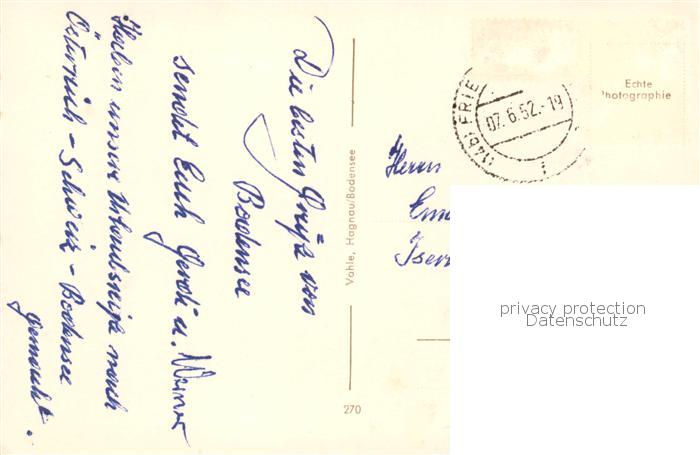 Die besten Grüße von
Bodensee
sendet Euch Gerdi u. Werner
Haben unsere Urlaubsreise nach
Österreich - Schweiz - Bodensee
gemacht.
Vahle, Hagnau/Bodensee
270
Echte
Photographie
(14b) FRIE
07.6.52.-19
Herrn
privacy protection
Datenschutz